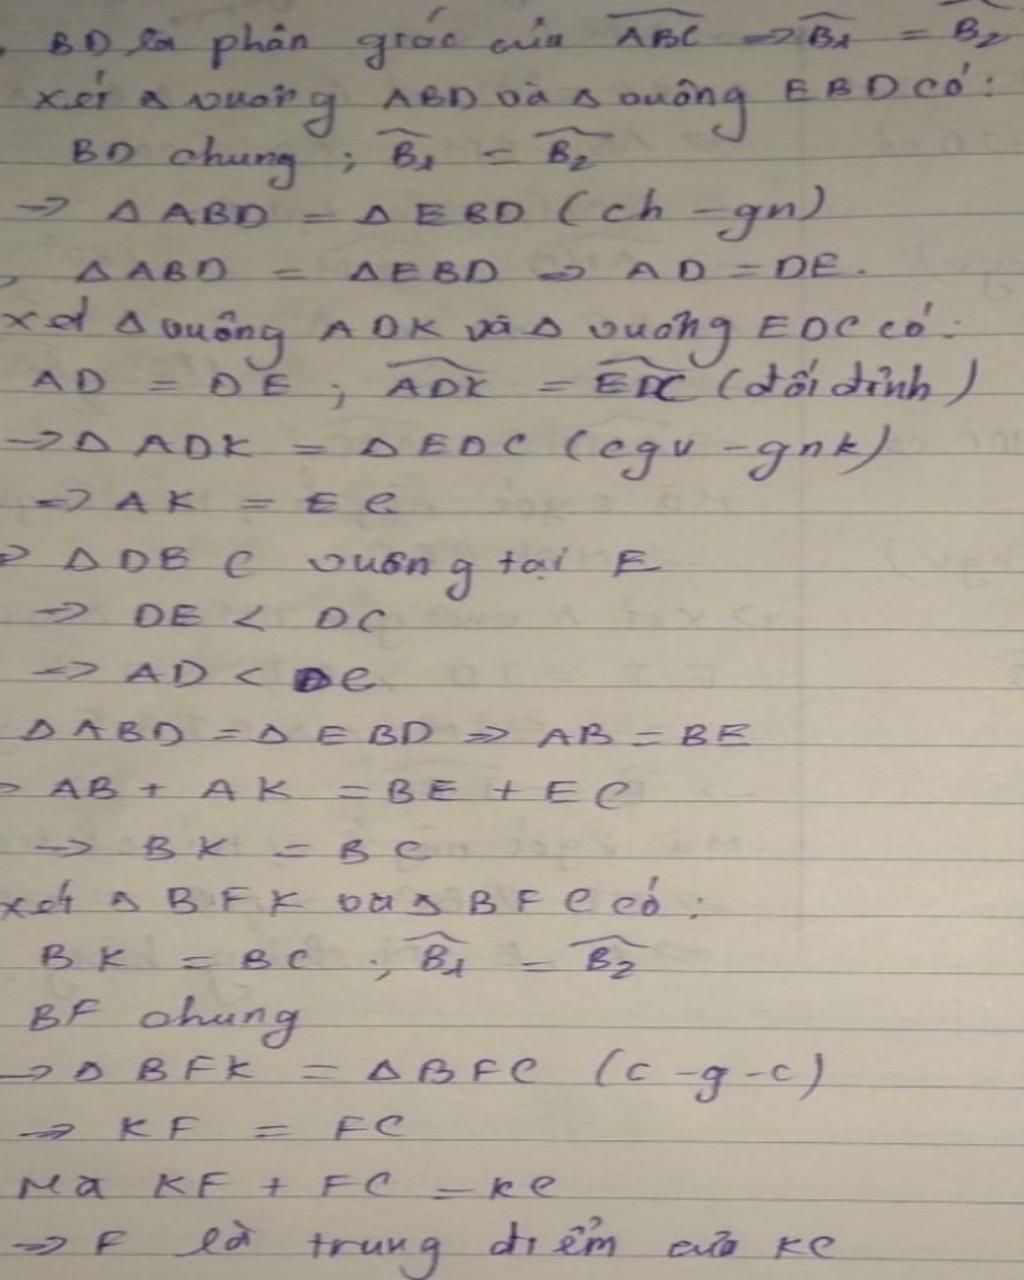 BD là phân giác của ABC => B1 = B2
xét Δ vuông ABD và Δ vuông EBD có:
BD chung ; B1 = B2
=> Δ ABD = Δ EBD (ch - gn)
, Δ ABD = Δ EBD => AD = DE.
xét Δ vuông ADK và Δ vuông EDC có:
AD = DE ; ADK = EDC (đối đỉnh)
=> Δ ADK = Δ EDC (cgv - gnk)
=> AK = EC
=> Δ DBC vuông tại E
=> DE < DC
=> AD < DC
Δ ABD = Δ EBD => AB = BE
=> AB + AK = BE + EC
=> BK = BC
xét Δ BFK và Δ BFC có:
BK = BC ; B1 = B2
BF chung
=> Δ BFK = Δ BFC (c - g - c)
=> KF = FC
Mà KF + FC = KC
=> F là trung điểm của KC